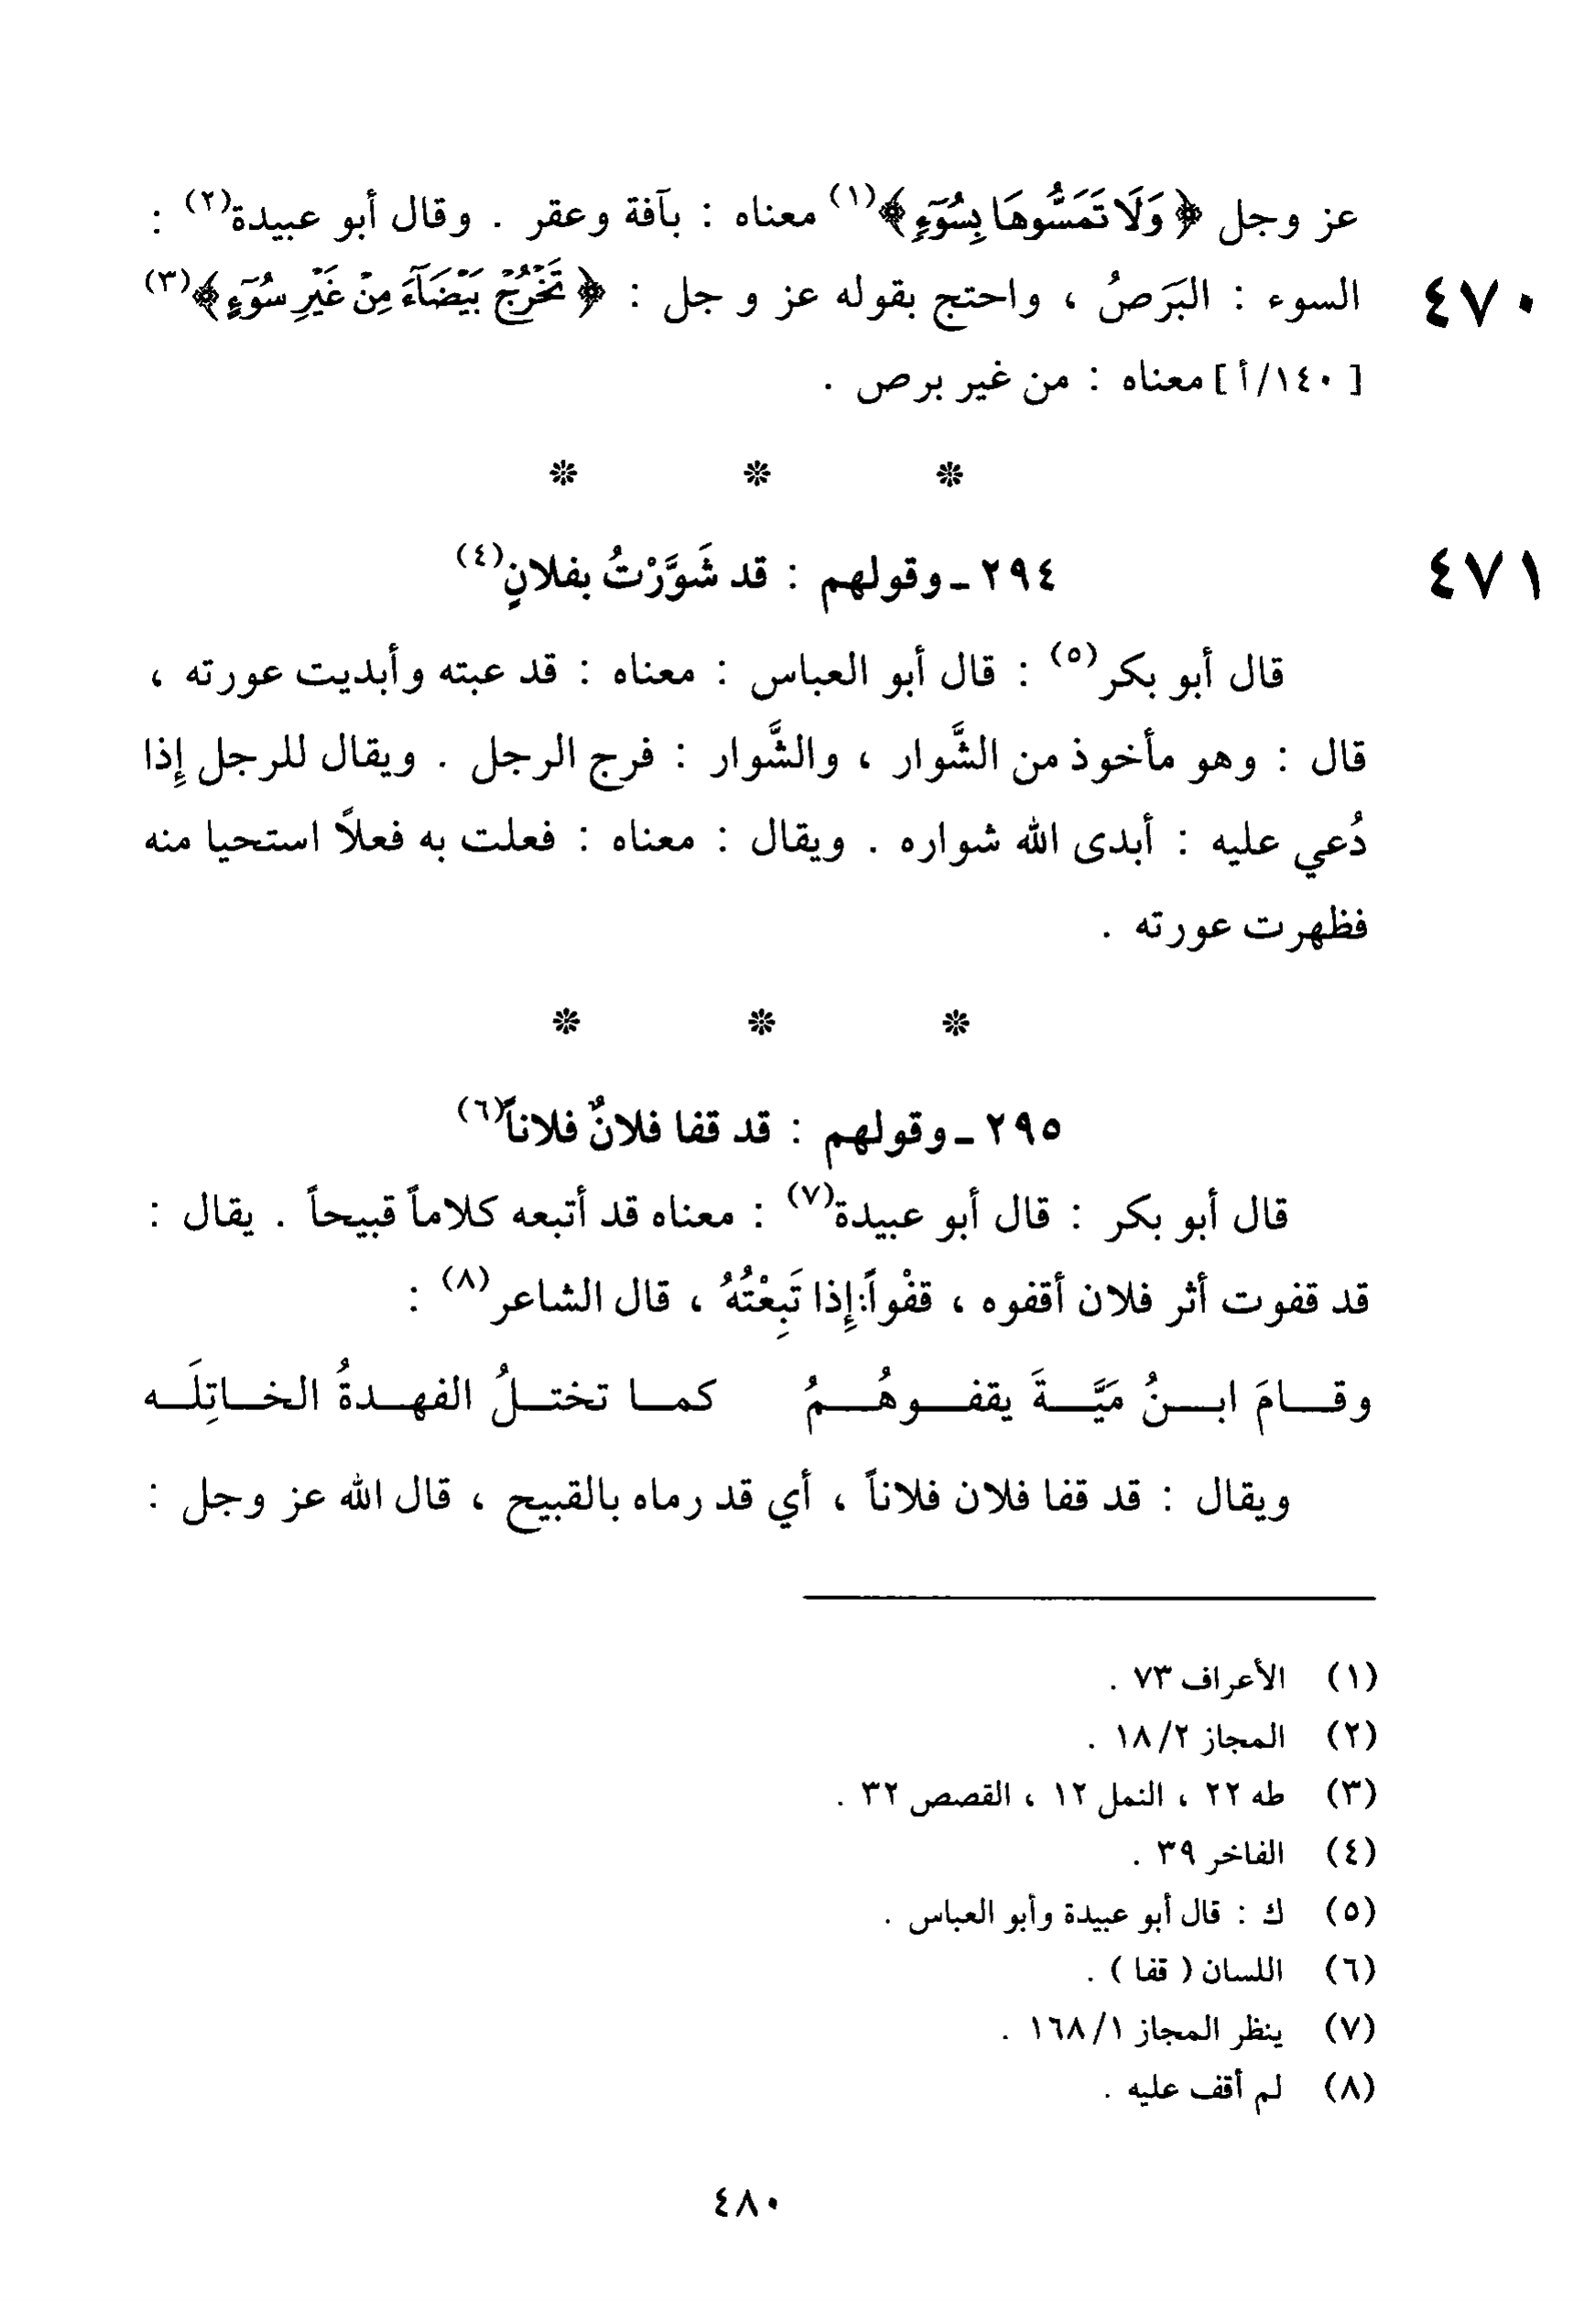 عز وجل ﴿ وَلَا تَمَسُّوهَا بِسُوٓءٍ ﴾(١) معناه : بآفة وعقر . وقال أبو عبيدة(٢) :
٤٧٠ السوء : البَرَصُ ، واحتج بقوله عز و جل : ﴿ تَخْرُجْ بَيْضَآءَ مِنْ غَيْرِ سُوٓءٍ ﴾(٣)
[ ١٤٠/أ ] معناه : من غير برص .
* * *
٤٧١ ٢٩٤ ـ وقولهم : قد شَوَّرْتُ بفلانٍ(٤)
قال أبو بكر(٥) : قال أبو العباس : معناه : قد عبته وأبديت عورته ،
قال : وهو مأخوذ من الشَّوار ، والشَّوار : فرج الرجل . ويقال للرجل إِذا
دُعي عليه : أبدى الله شواره . ويقال : معناه : فعلت به فعلاً استحيا منه
فظهرت عورته .
* * *
٢٩٥ ـ وقولهم : قد قفا فلانٌ فلاناً(٦)
قال أبو بكر : قال أبو عبيدة(٧) : معناه قد أتبعه كلاماً قبيحاً . يقال :
قد قفوت أثر فلان أقفوه ، قفْواً:إِذا تَبِعْتُهُ ، قال الشاعر(٨) :
وقامَ ابنُ مَيَّةَ يقفوهُمُ كما تختلُ الفهدةُ الخاتِلَه
ويقال : قد قفا فلان فلاناً ، أي قد رماه بالقبيح ، قال الله عز وجل :
(١) الأعراف ٧٣ .
(٢) المجاز ١٨/٢ .
(٣) طه ٢٢ ، النمل ١٢ ، القصص ٣٢ .
(٤) الفاخر ٣٩ .
(٥) ك : قال أبو عبيدة وأبو العباس .
(٦) اللسان ( قفا ) .
(٧) ينظر المجاز ١٦٨/١ .
(٨) لم أقف عليه .
٤٨٠